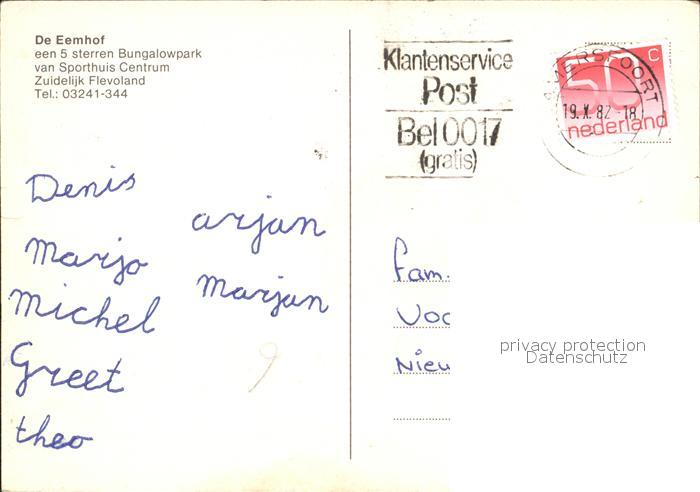 De Eemhof
een 5 sterren Bungalowpark
van Sporthuis Centrum
Zuidelijk Flevoland
Tel.: 03241-344
Denis
arjan
Marjo
Marjan
Michel
Greet
theo
Klantenservice
Post
Bel 0017
(gratis)
AMERSFOORT
19.X.82-18
50 c
nederland
fam.
Voc
Nieu
privacy protection
Datenschutz